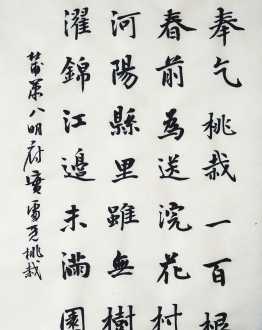 奉气桃栽一百根
春前為送浣花村
河陽縣里雖無樹
濯錦江邊未滿園
蕭八明府實處覓桃栽